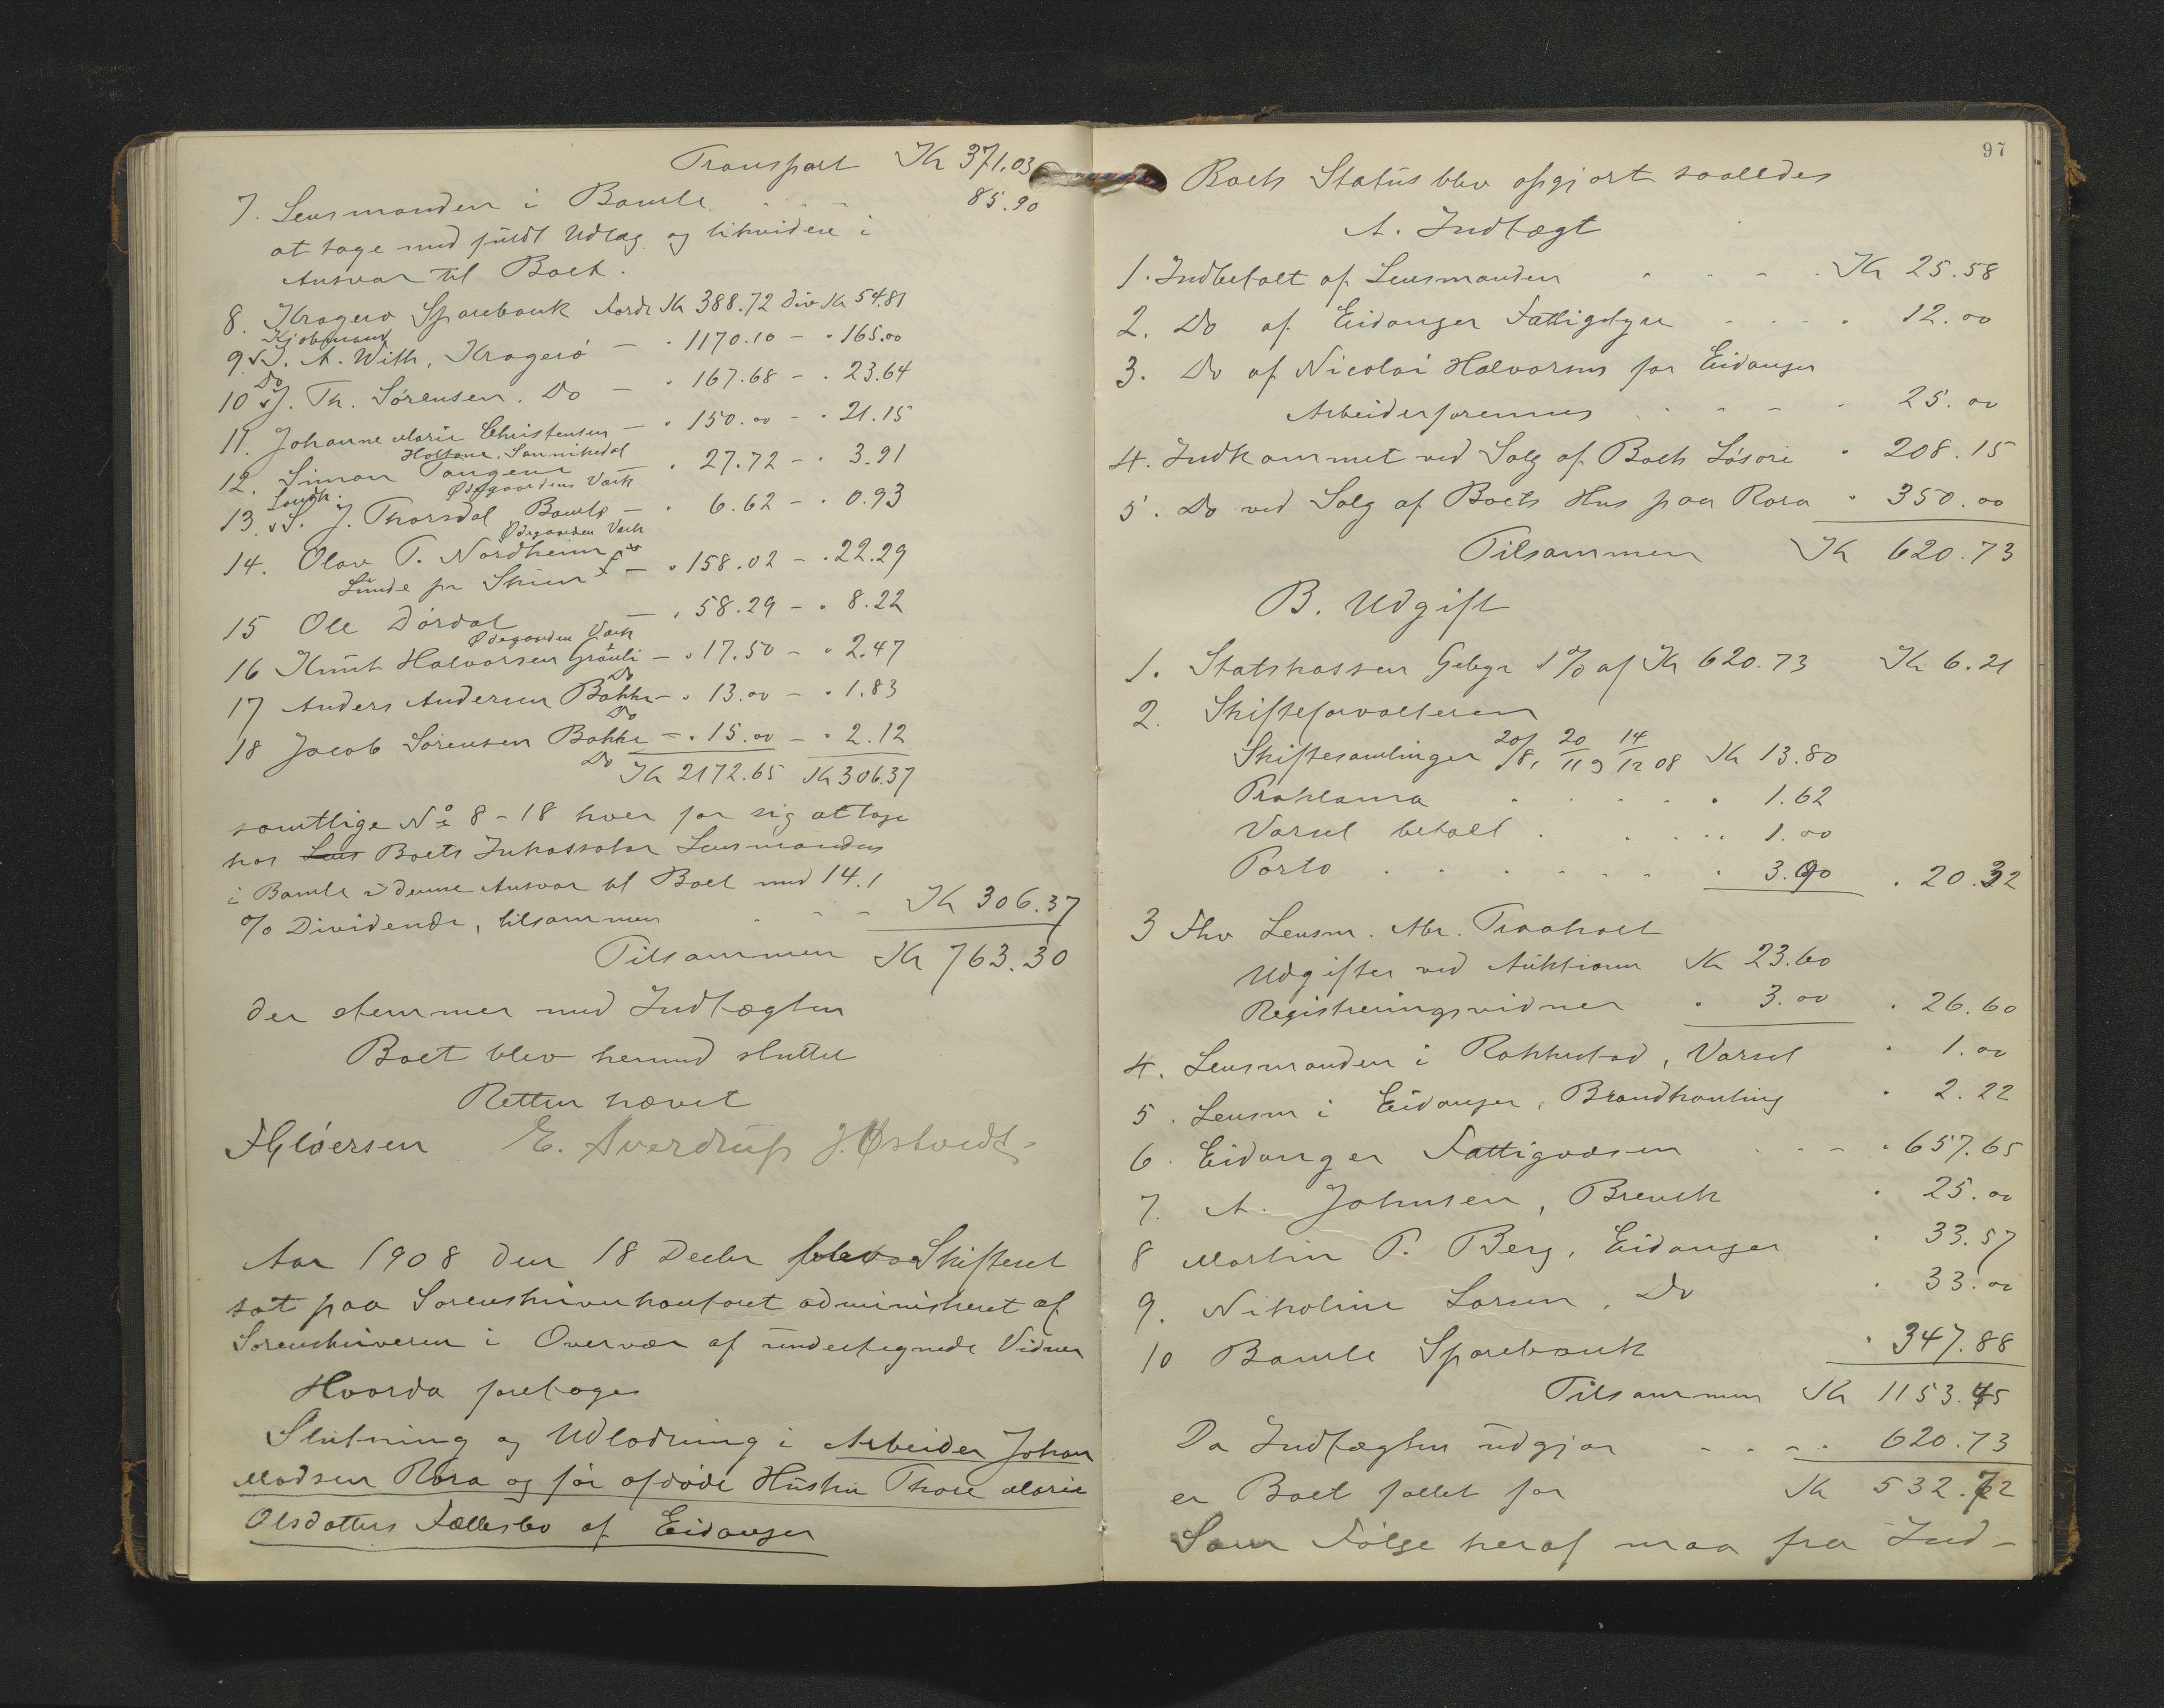 Transport Kr 371.03
7. Lensmanden i Bamle - - - 85.90
at tage med fuldt Udlæg og likvidere i
Ansvar til Boet.
8. Kragerø Sparebank Fordr Kr 388.72 Div Kr 54.81
Kjøbmand
9. S. A. With, Kragerø — " 1170.10 - " 165.00
Do
10 J. Th. Sørensen. Do — " 167.68 - " 23.64
11. Johanne Marie Christensen — " 150.00 - " 21.15
Holtane, Sannikedal
12. Simon Tangene — " 27.72 - " 3.91
Landh. Ødegaardens Værk
13. S. J. Thorsdal Bamle — " 6.62 - " 0.93
Ødegaarden Værk
14. Olav T. Nordheim — " 158.02 - " 22.29
Lunde pr Skien
15 Ole Dørdal — " 58.29 - " 8.22
Ødegaarden Værk
16 Knut Halvorsen Gråuli — " 17.50 - " 2.47
Do
17 Anders Andersen Bakke — " 13.00 - " 1.83
Do
18 Jacob Sørensen Bakke — " 15.00 - " 2.12
Do Kr 2172.65 Kr 306.37
samtlige No 8 - 18 hver for sig at tage
hos Lens Boets Inkassator Lensmanden
i Bamle i denne Ansvar til Boet med 14.1
% Dividende, tilsammen - - - Kr 306.37
Tilsammen Kr 763.30
der stemmer med Indtægten
Boet blev hermed sluttet
Retten hævet
E. Sverdrup J. Østvedt
Aar 1908 den 18 Decbr blev Skifteret
sat paa Sorenskriverkontoret administreret af
Sorenskriveren i Overvær af undertegnede Vidner
Hvorda foretoges
Slutning og Udlodning i Arbeider Johan
Madsen Røra og før afdøde Hustru Thore Marie
Olsdatters Fællesbo af Eidanger
97
Boets Status blev opgjort saaledes
A. Indtægt
1. Indbetalt af Lensmanden - - - Kr 25.58
2. Do af Eidanger Fattigstyre - - - " 12.00
3. Do af Nicolai Halvorsen for Eidanger
Arbeiderforennes - - - " 25.00
4. Indkommet ved Salg af Boets Løsøre " 208.15
5. Do ved Salg af Boets Hus paa Røra " 350.00
Tilsammen Kr 620.73
B. Udgift
1. Statskassen Gebyr 1% af Kr 620.73 Kr 6.21
2. Skifteforvalteren
Skiftesamlinger 20/8, 20/11 & 14/12 08 Kr 13.80
Proklama - - - " 1.62
Varsel betalt - - - " 1.00
Porto - - - " 3.90 " 20.32
3 Fhv Lensm. Abr. Traaholt
Udgifter ved Auktionen Kr 23.60
Registreringsvidner " 3.00 " 26.60
4. Lensmanden i Rakkestad, Varsel " 1.00
5. Lensm i Eidanger, Brandkonting " 2.22
6. Eidanger Fattigvæsen - - - " 657.65
7. A. Johnsen, Brevik " 25.00
8 Martin P. Berg, Eidanger " 33.57
9. Nikoline Larsen, Do " 33.00
10 Bamle Sparebank " 347.88
Tilsammen Kr 1153.45
Da Indtægten udgjør - - - 620.73
er Boet fallet for Kr 532.72
Som Følge heraf maa fra Ind-